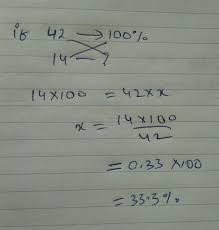 if 42 → 100%
14 → ?
14×100 = 42×x
x = 14×100
42
= 0.33 ×100
= 33.3%